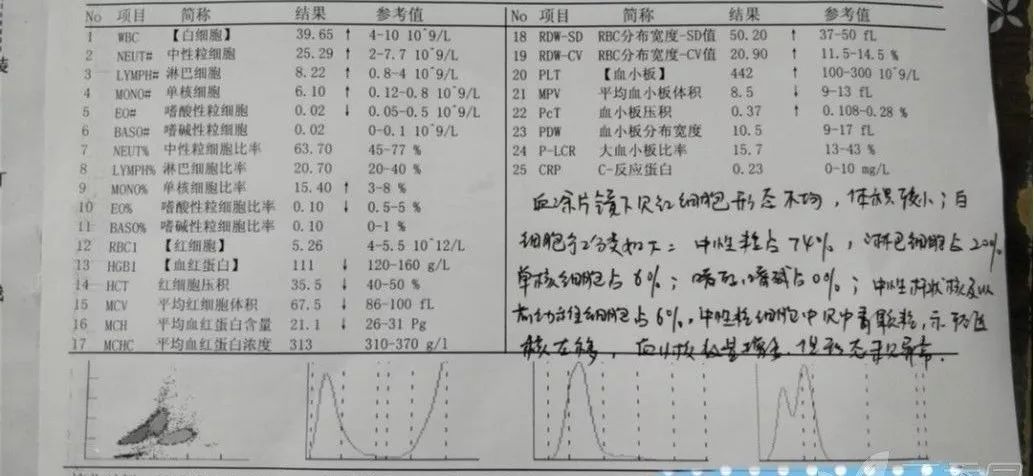 No 项目 简称 结果 参考值
1 WBC 【白细胞】 39.65 ↑ 4-10 10^9/L
2 NEUT# 中性粒细胞 25.29 ↑ 2-7.7 10^9/L
3 LYMPH# 淋巴细胞 8.22 ↑ 0.8-4 10^9/L
4 MONO# 单核细胞 6.10 ↑ 0.12-0.8 10^9/L
5 EO# 嗜酸性粒细胞 0.02 ↓ 0.05-0.5 10^9/L
6 BASO# 嗜碱性粒细胞 0.02 0-0.1 10^9/L
7 NEUT% 中性粒细胞比率 63.70 45-77 %
8 LYMPH% 淋巴细胞比率 20.70 20-40 %
9 MONO% 单核细胞比率 15.40 ↑ 3-8 %
10 EO% 嗜酸性粒细胞比率 0.10 ↓ 0.5-5 %
11 BASO% 嗜碱性粒细胞比率 0.10 0-1 %
12 RBC1 【红细胞】 5.26 4-5.5 10^12/L
13 HGB1 【血红蛋白】 111 ↓ 120-160 g/L
14 HCT 红细胞压积 35.5 ↓ 40-50 %
15 MCV 平均红细胞体积 67.5 ↓ 86-100 fL
16 MCH 平均血红蛋白含量 21.1 ↓ 26-31 Pg
17 MCHC 平均血红蛋白浓度 313 310-370 g/l
No 项目 简称 结果 参考值
18 RDW-SD RBC分布宽度-SD值 50.20 ↑ 37-50 fL
19 RDW-CV RBC分布宽度-CV值 20.90 ↑ 11.5-14.5 %
20 PLT 【血小板】 442 ↑ 100-300 10^9/L
21 MPV 平均血小板体积 8.5 ↓ 9-13 fL
22 PcT 血小板压积 0.37 ↑ 0.108-0.28 %
23 PDW 血小板分布宽度 10.5 9-17 fL
24 P-LCR 大血小板比率 15.7 13-43 %
25 CRP C-反应蛋白 0.23 0-10 mg/L
血涂片镜下见红细胞形态不均,体积较小;白
细胞手工分类如下:中性粒占74%,淋巴细胞占20%
单核细胞占6%;嗜酸,嗜碱占0%;中性杆状核及以
占6%,中性粒细胞中见中毒颗粒,示
核左移,血小板数量增多,但形态未见异常.